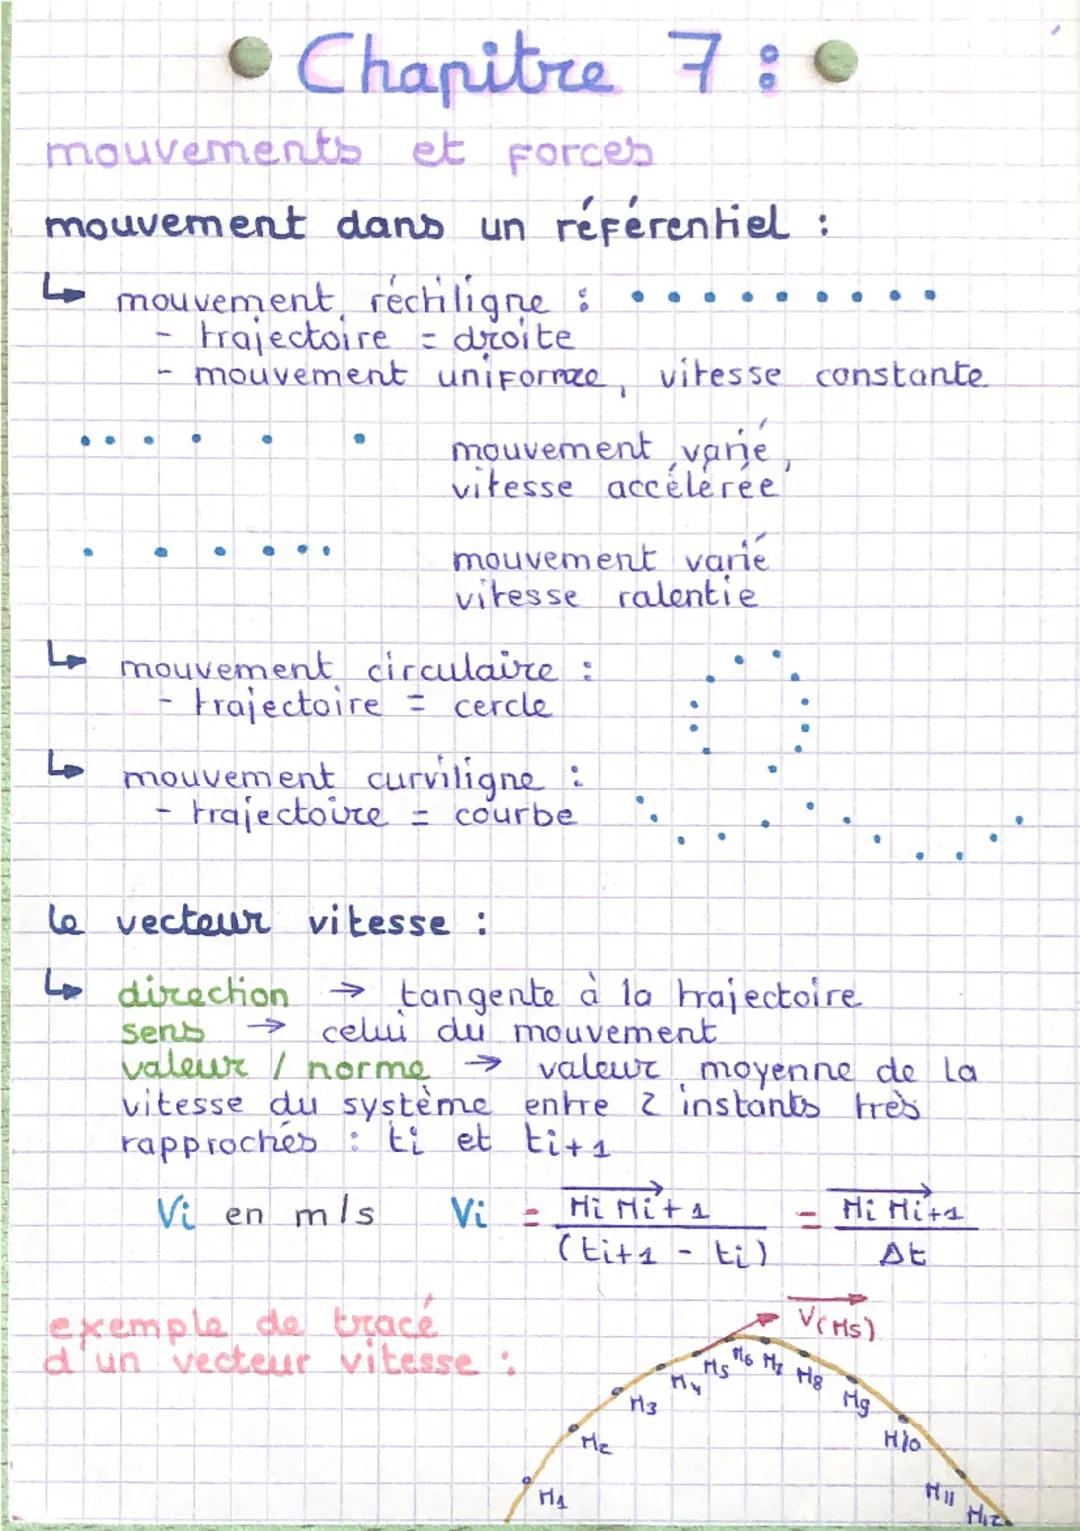 Chapitre 7 :
mouvements et forces
mouvement dans un référentiel :
↳ mouvement réctiligne :
- trajectoire = droite
- mouvement uniforme, vitesse constante
mouvement varié,
vitesse accélérée
mouvement varié
vitesse ralentie
↳ mouvement circulaire :
- trajectoire = cercle
↳ mouvement curviligne :
- trajectoire = courbe
le vecteur vitesse :
↳ direction → tangente à la trajectoire
sens → celui du mouvement
valeur / norme → valeur moyenne de la
vitesse du système entre 2 instants très
rapprochés : ti et ti+1
Vi en m/s Vi = MiMi+1 / (ti+1 - ti) = MiMi+1 / Δt
exemple de tracé
d'un vecteur vitesse :
V(M5)
M1 M2 M3 M4 M5 M6 M7 M8 M9 M10 M11 M12